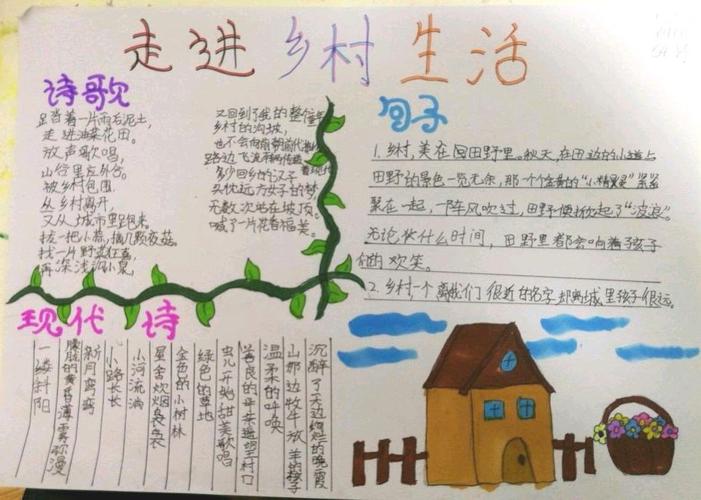 走进乡村生活
诗歌
足踏着一片雨后泥土,
走进油菜花田。
放声歌唱,
山谷里应外合。
被乡村包围
从乡村离开,
又从城市里跑来。
拔一把小蒜,摘几颗夜菇
找一片野菜狂喜,
再深浅沟小泉,
又回到了我的整个
乡村的沟坡,
也不会向前
路边飞流
多少回乡的汉子
头枕远方女子的梦
无数次站在坡顶。
喊了一片花香福美。
句子
1.乡村,美在回田野里。秋天,在田边的小道上
田野的景色一览无余,那一个个金黄的“小精灵”紧紧
聚在一起,一阵风吹过,田野便掀起了“波浪”。
无论什么时间,田野里都会响着孩子
们的欢笑。
2.乡村一个离我们很近的名字,却离城里孩子很远。
现代诗
沉醉了天边绚烂的晚霞
山那边牧牛放羊的孩子
温柔的呼唤
善良的母亲遥望村口
虫儿开始甜美歌唱
绿色的草地
金色的小树林
星舍炊烟袅袅
小河流淌
小路长长
新月弯弯
朦胧的黄昏薄雾弥漫
一缕斜阳